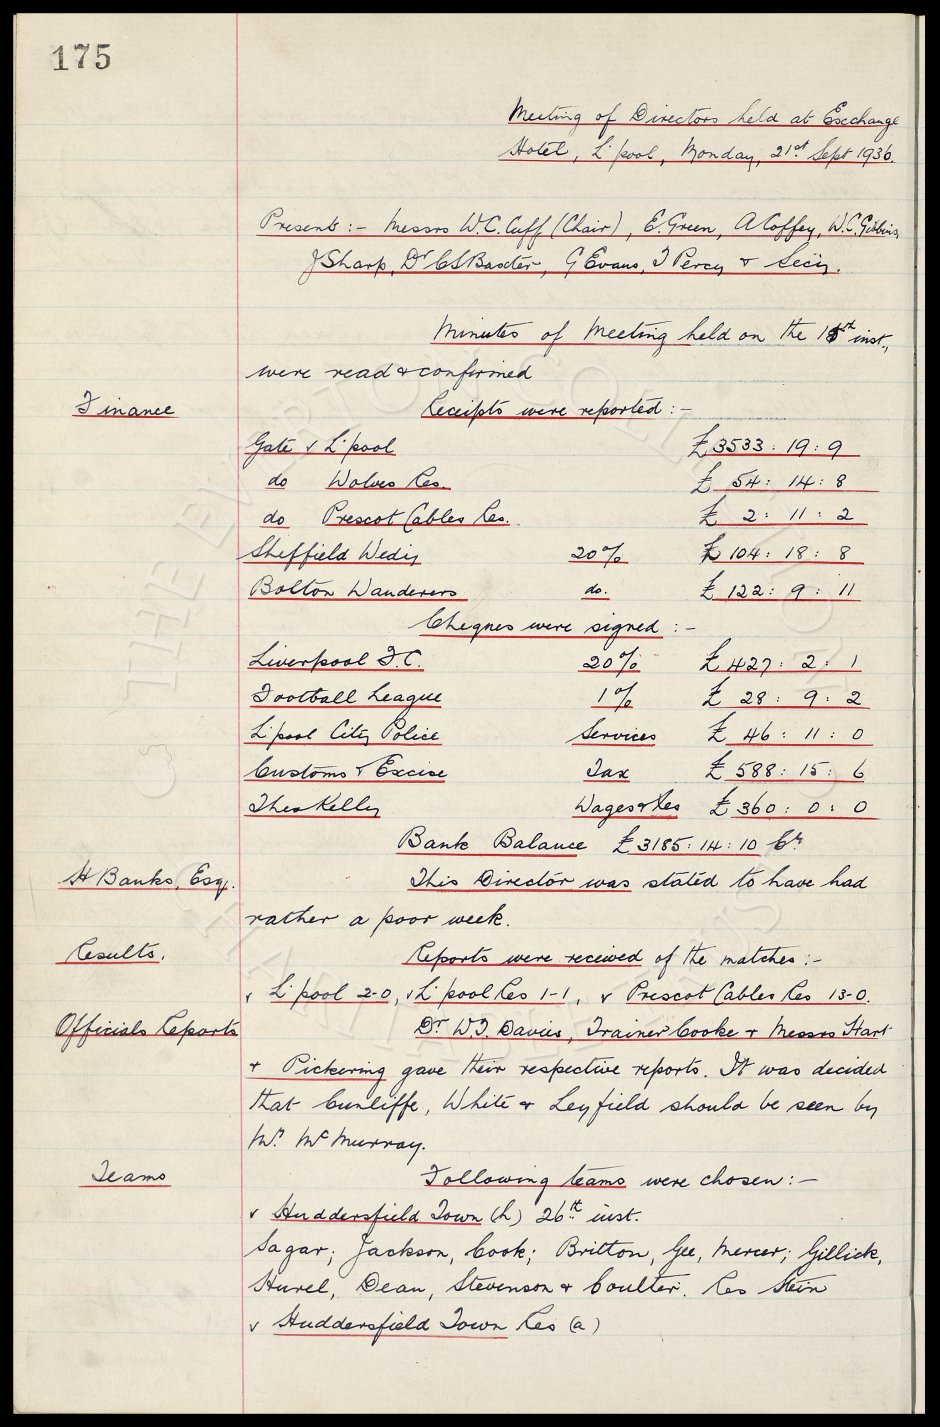 175
Meeting of Directors held at Exchange
Hotel, L'pool, Monday, 21st Sept 1936.
Present :- Messrs W.C. Cuff (Chair), E. Green, A Coffey, W.C. Gibbins,
J Sharp, Dr C S Baxter, G Evans, T Percy & Sec'y.
Minutes of Meeting held on the 15th inst.,
were read & confirmed
Finance Receipts were reported :-
Gate v L'pool £3533 : 19 : 9
do Wolves Res. £ 54 : 14 : 8
do Prescot Cables Res. £ 2 : 11 : 2
Sheffield Wedy 20% £ 104 : 18 : 8
Bolton Wanderers do. £ 122 : 9 : 11
Cheques were signed :-
Liverpool F.C. 20% £ 427 : 2 : 1
Football League 1% £ 28 : 9 : 2
L'pool City Police Services £ 46 : 11 : 0
Customs & Excise Tax £ 588 : 15 : 6
Theo Kelly Wages & Xes £ 360 : 0 : 0
Bank Balance £3185 : 14 : 10 Cr
H Banks, Esq. This Director was stated to have had
rather a poor week.
Results. Reports were received of the matches :-
v L'pool 2-0, v L'pool Res 1-1, v Prescot Cables Res 13-0.
Officials Reports Dr W.F. Davies, Trainer Cooke & Messrs Hart
& Pickering gave their respective reports. It was decided
that Cunliffe, White & Leyfield should be seen by
Mr. McMurray.
Teams Following teams were chosen :-
v Huddersfield Town (h) 26th inst.
Sagar; Jackson, Cook; Britton, Gee, Mercer; Gillick,
Hurel, Dean, Stevenson & Coulter. Res Stein
v Huddersfield Town Res (a)